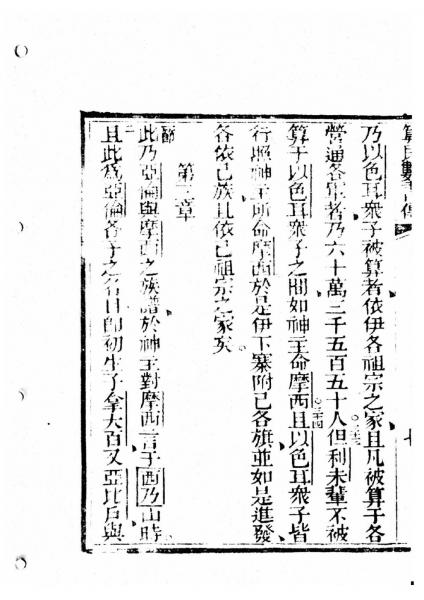 算民數書傳
七
乃以色耳眾子被算者依伊各祖宗之家且凡被算于各
營通各軍者乃六十萬三千五百五十人但利未輩不被
算于以色耳眾子之間如神主命摩西且以色耳眾子皆
行照神主所命摩西於是伊下寨附己各旗並如是進發
各依己族且依己祖宗之家矣
第三章
節 此乃亞倫與摩西之族譜於神主對摩西言于西乃山時
且此為亞倫各子之名目即初生子拿大百又亞比戶與